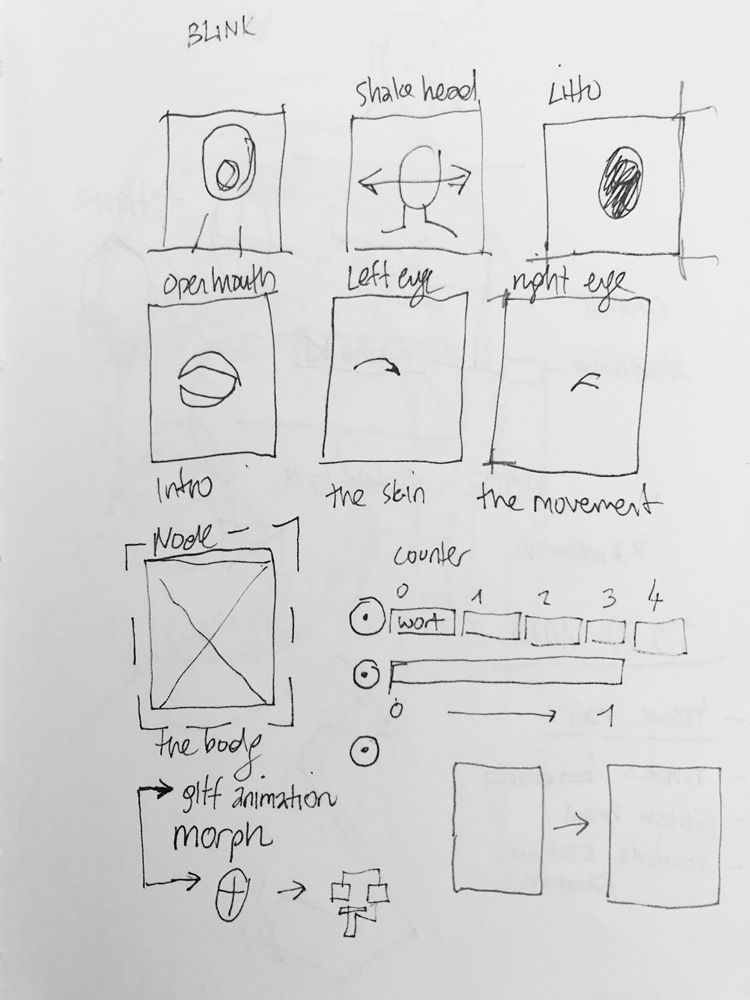 BLINK
Shake head
open mouth
Left eye
right eye
Intro
the skin
the movement
Node
counter
0 1 2 3 4
wort
0 1
the body
gltf animation
morph